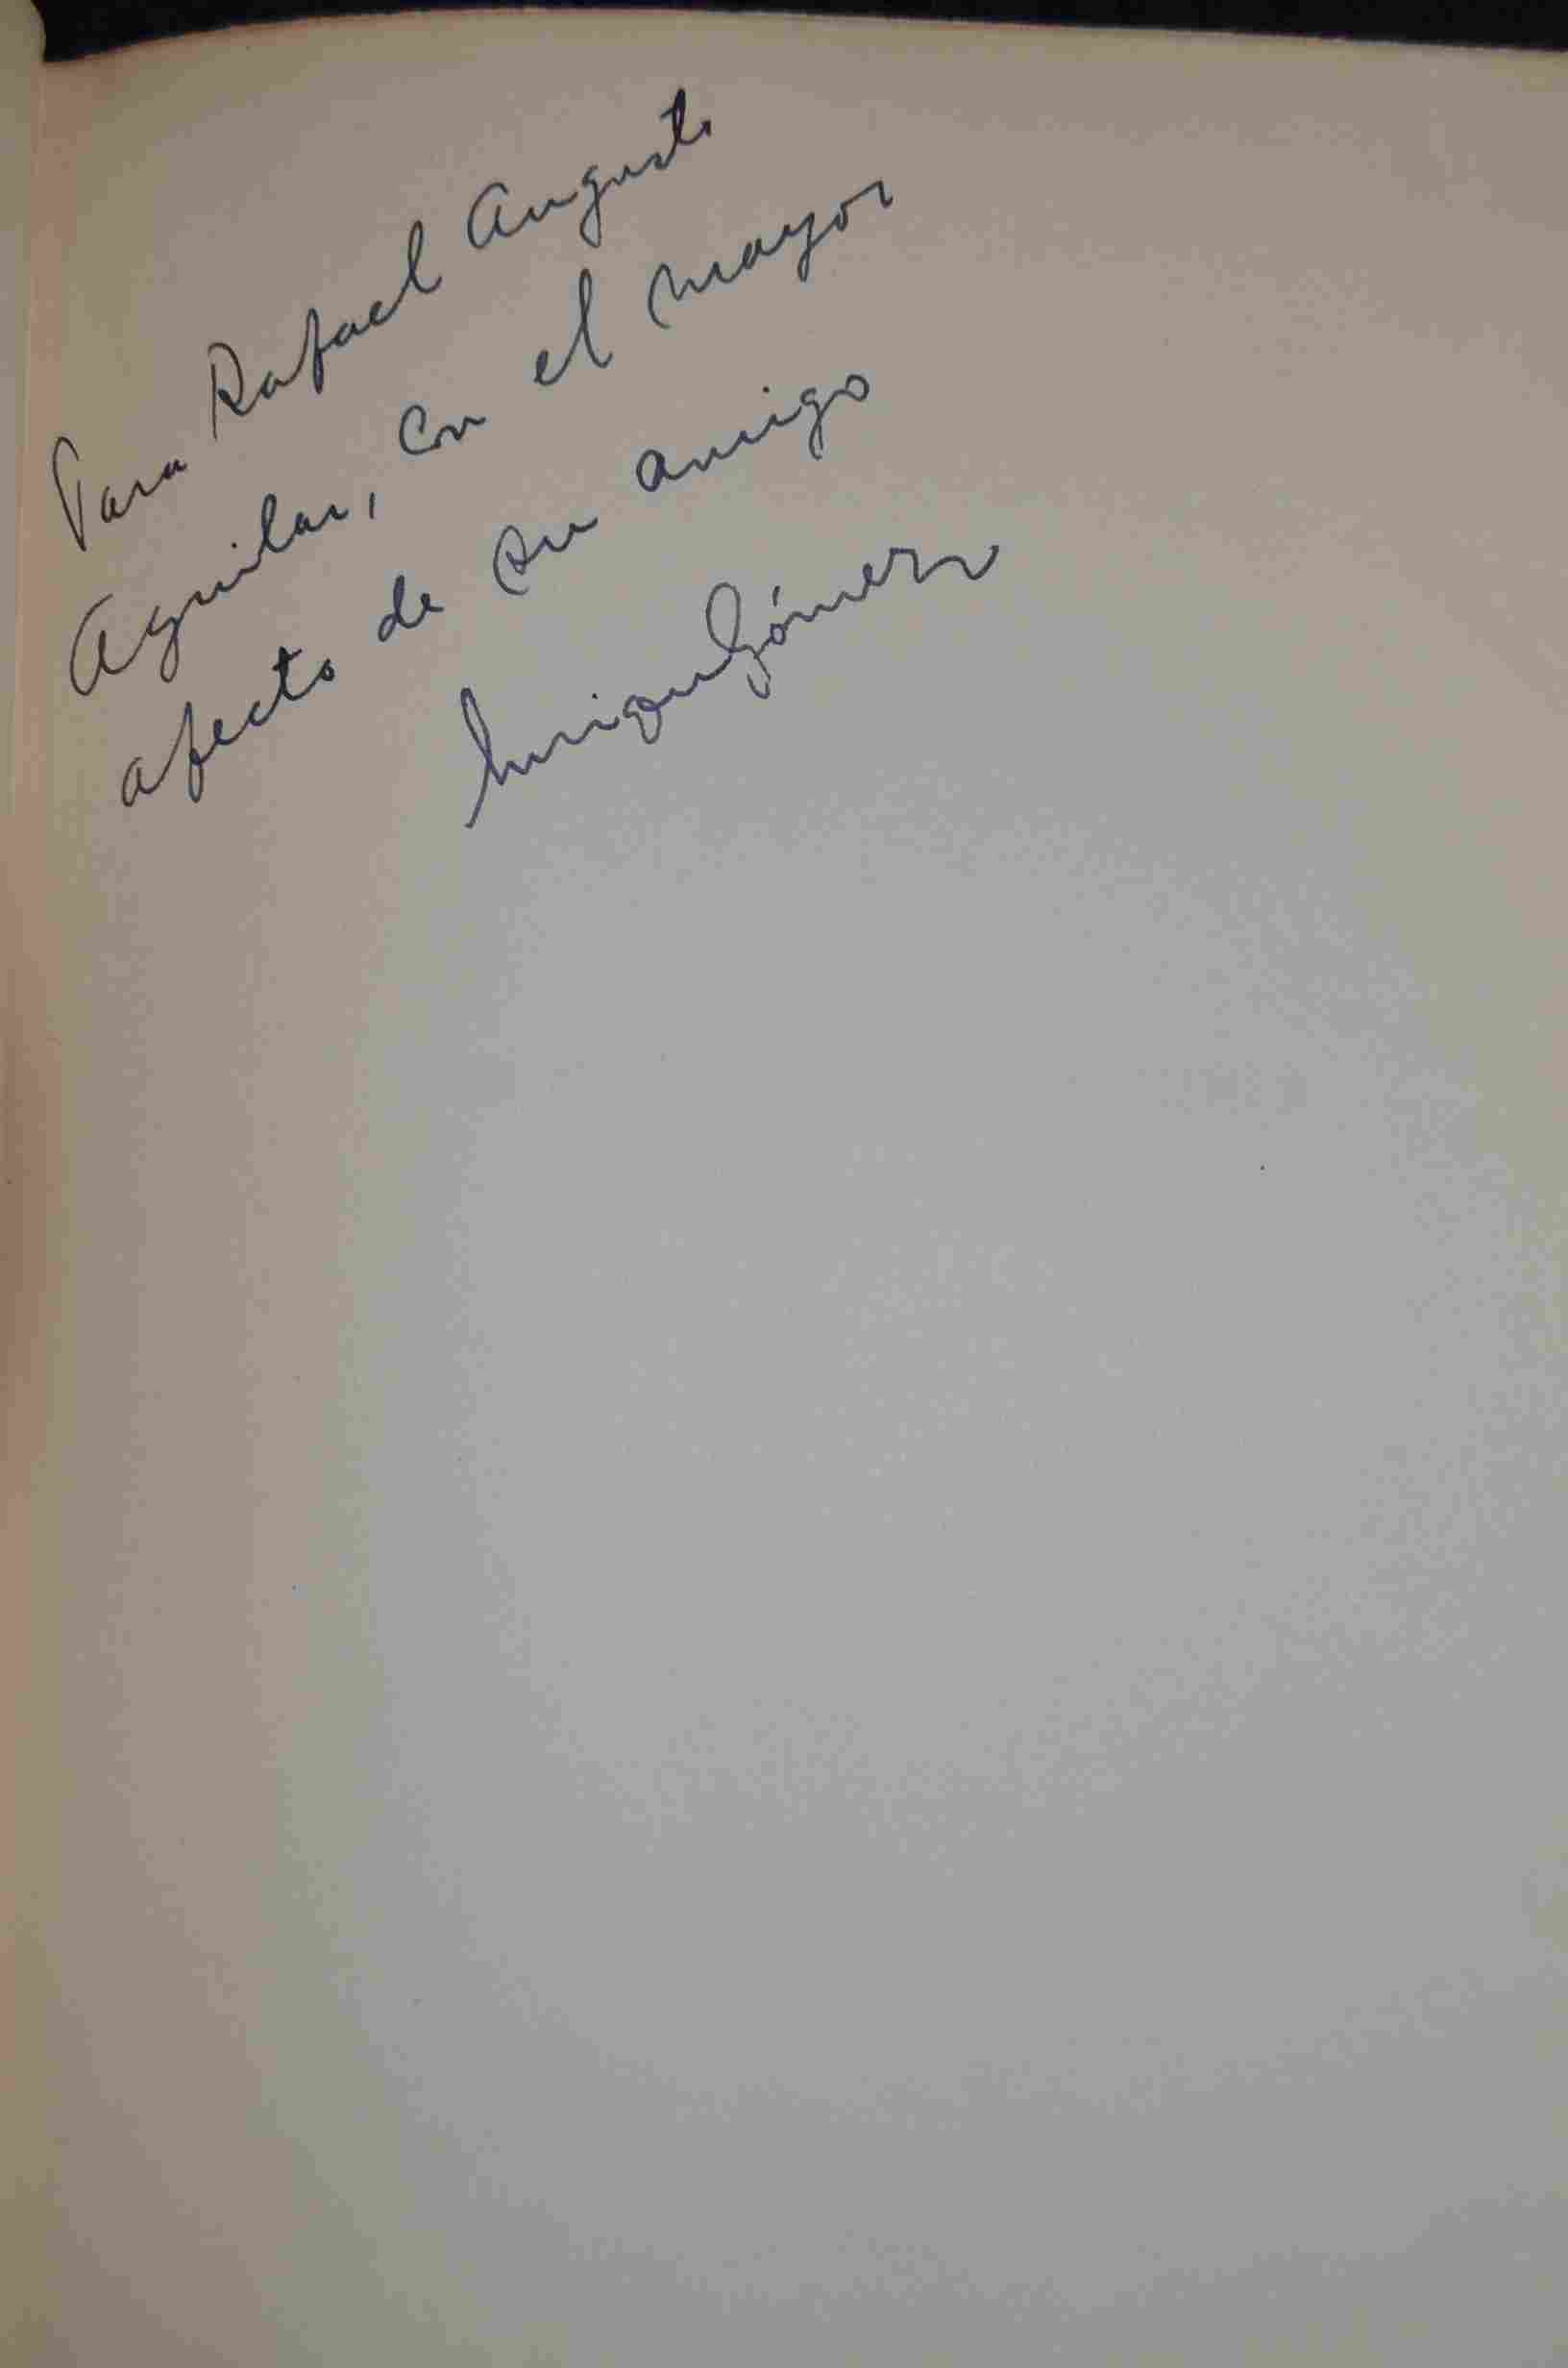 Para Rafael Augusto
Aguilar, con el mayor
afecto de su amigo
Enrique Gómez